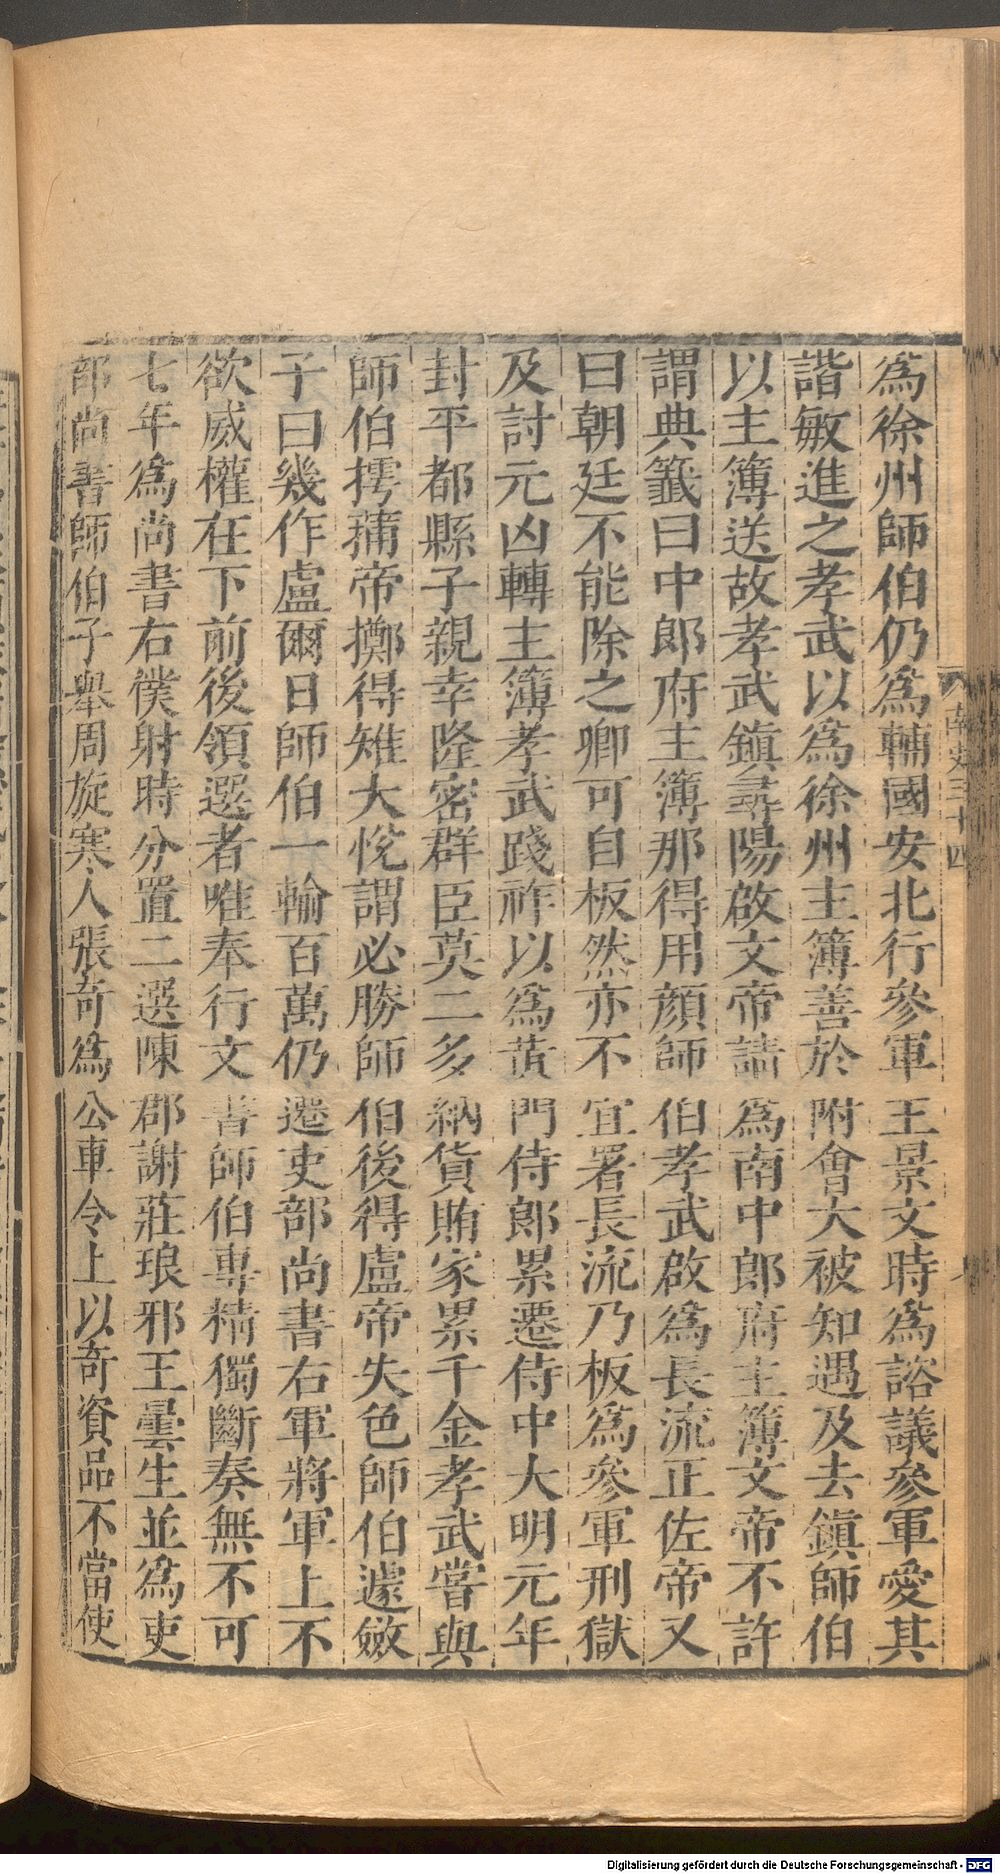 爲徐州師伯仍爲輔國安北行參軍王景文時爲諮議參軍愛其
諧敏進之孝武以爲徐州主簿善於附會大被知遇及去鎮師伯
以主簿送故孝武鎮尋陽啟文帝請爲南中郎府主簿文帝不許
謂典籤曰中郎府主簿那得用顔師伯孝武啟爲長流正佐帝又
曰朝廷不能除之卿可自板然亦不宜署長流乃板爲參軍刑獄
及討元凶轉主簿孝武踐祚以爲黄門侍郎累遷侍中大明元年
封平都縣子親幸隆密群臣莫二多納貨賄家累千金孝武嘗與
師伯摴蒱帝擲得雉大悅謂必勝師伯後得盧帝失色師伯遽斂
子曰幾作盧爾日師伯一輸百萬仍遷吏部尚書右軍將軍上不
欲威權在下前後領選者唯奉行文書師伯專精獨斷奏無不可
七年爲尚書右僕射時分置二選陳郡謝莊琅邪王曇生並爲吏
部尚書師伯子舉周旋寒人張奇爲公車令上以奇資品不當使
南史三十四
Digitalisierung gefördert durch die Deutsche Forschungsgemeinschaft - DFG